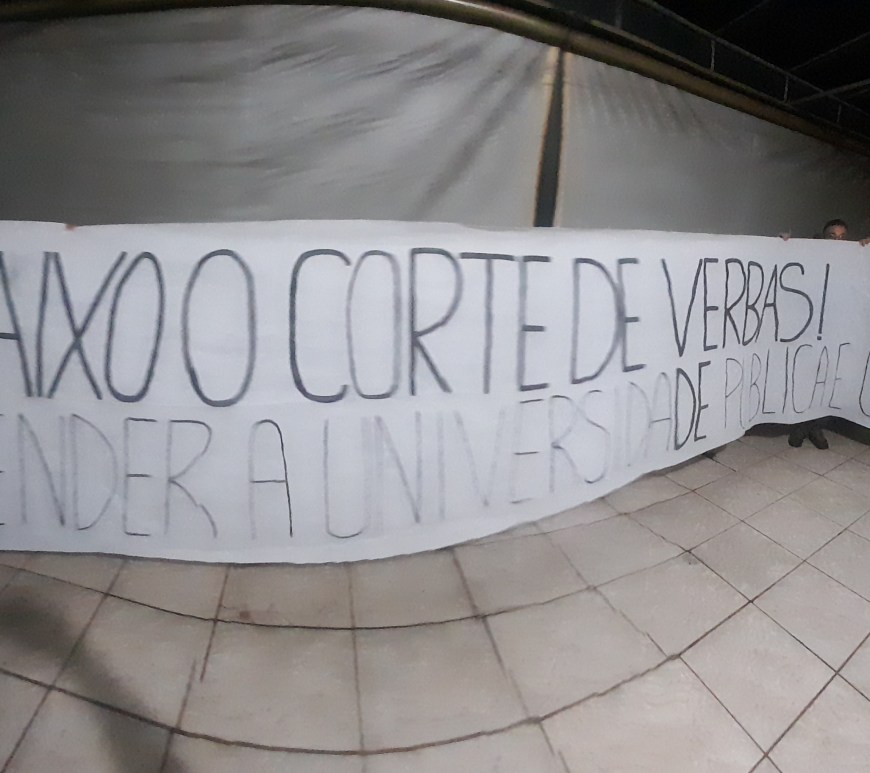 AIXO O CORTE DE VERBAS!
ENDER A UNIVERSIDADE PÚBLICA E